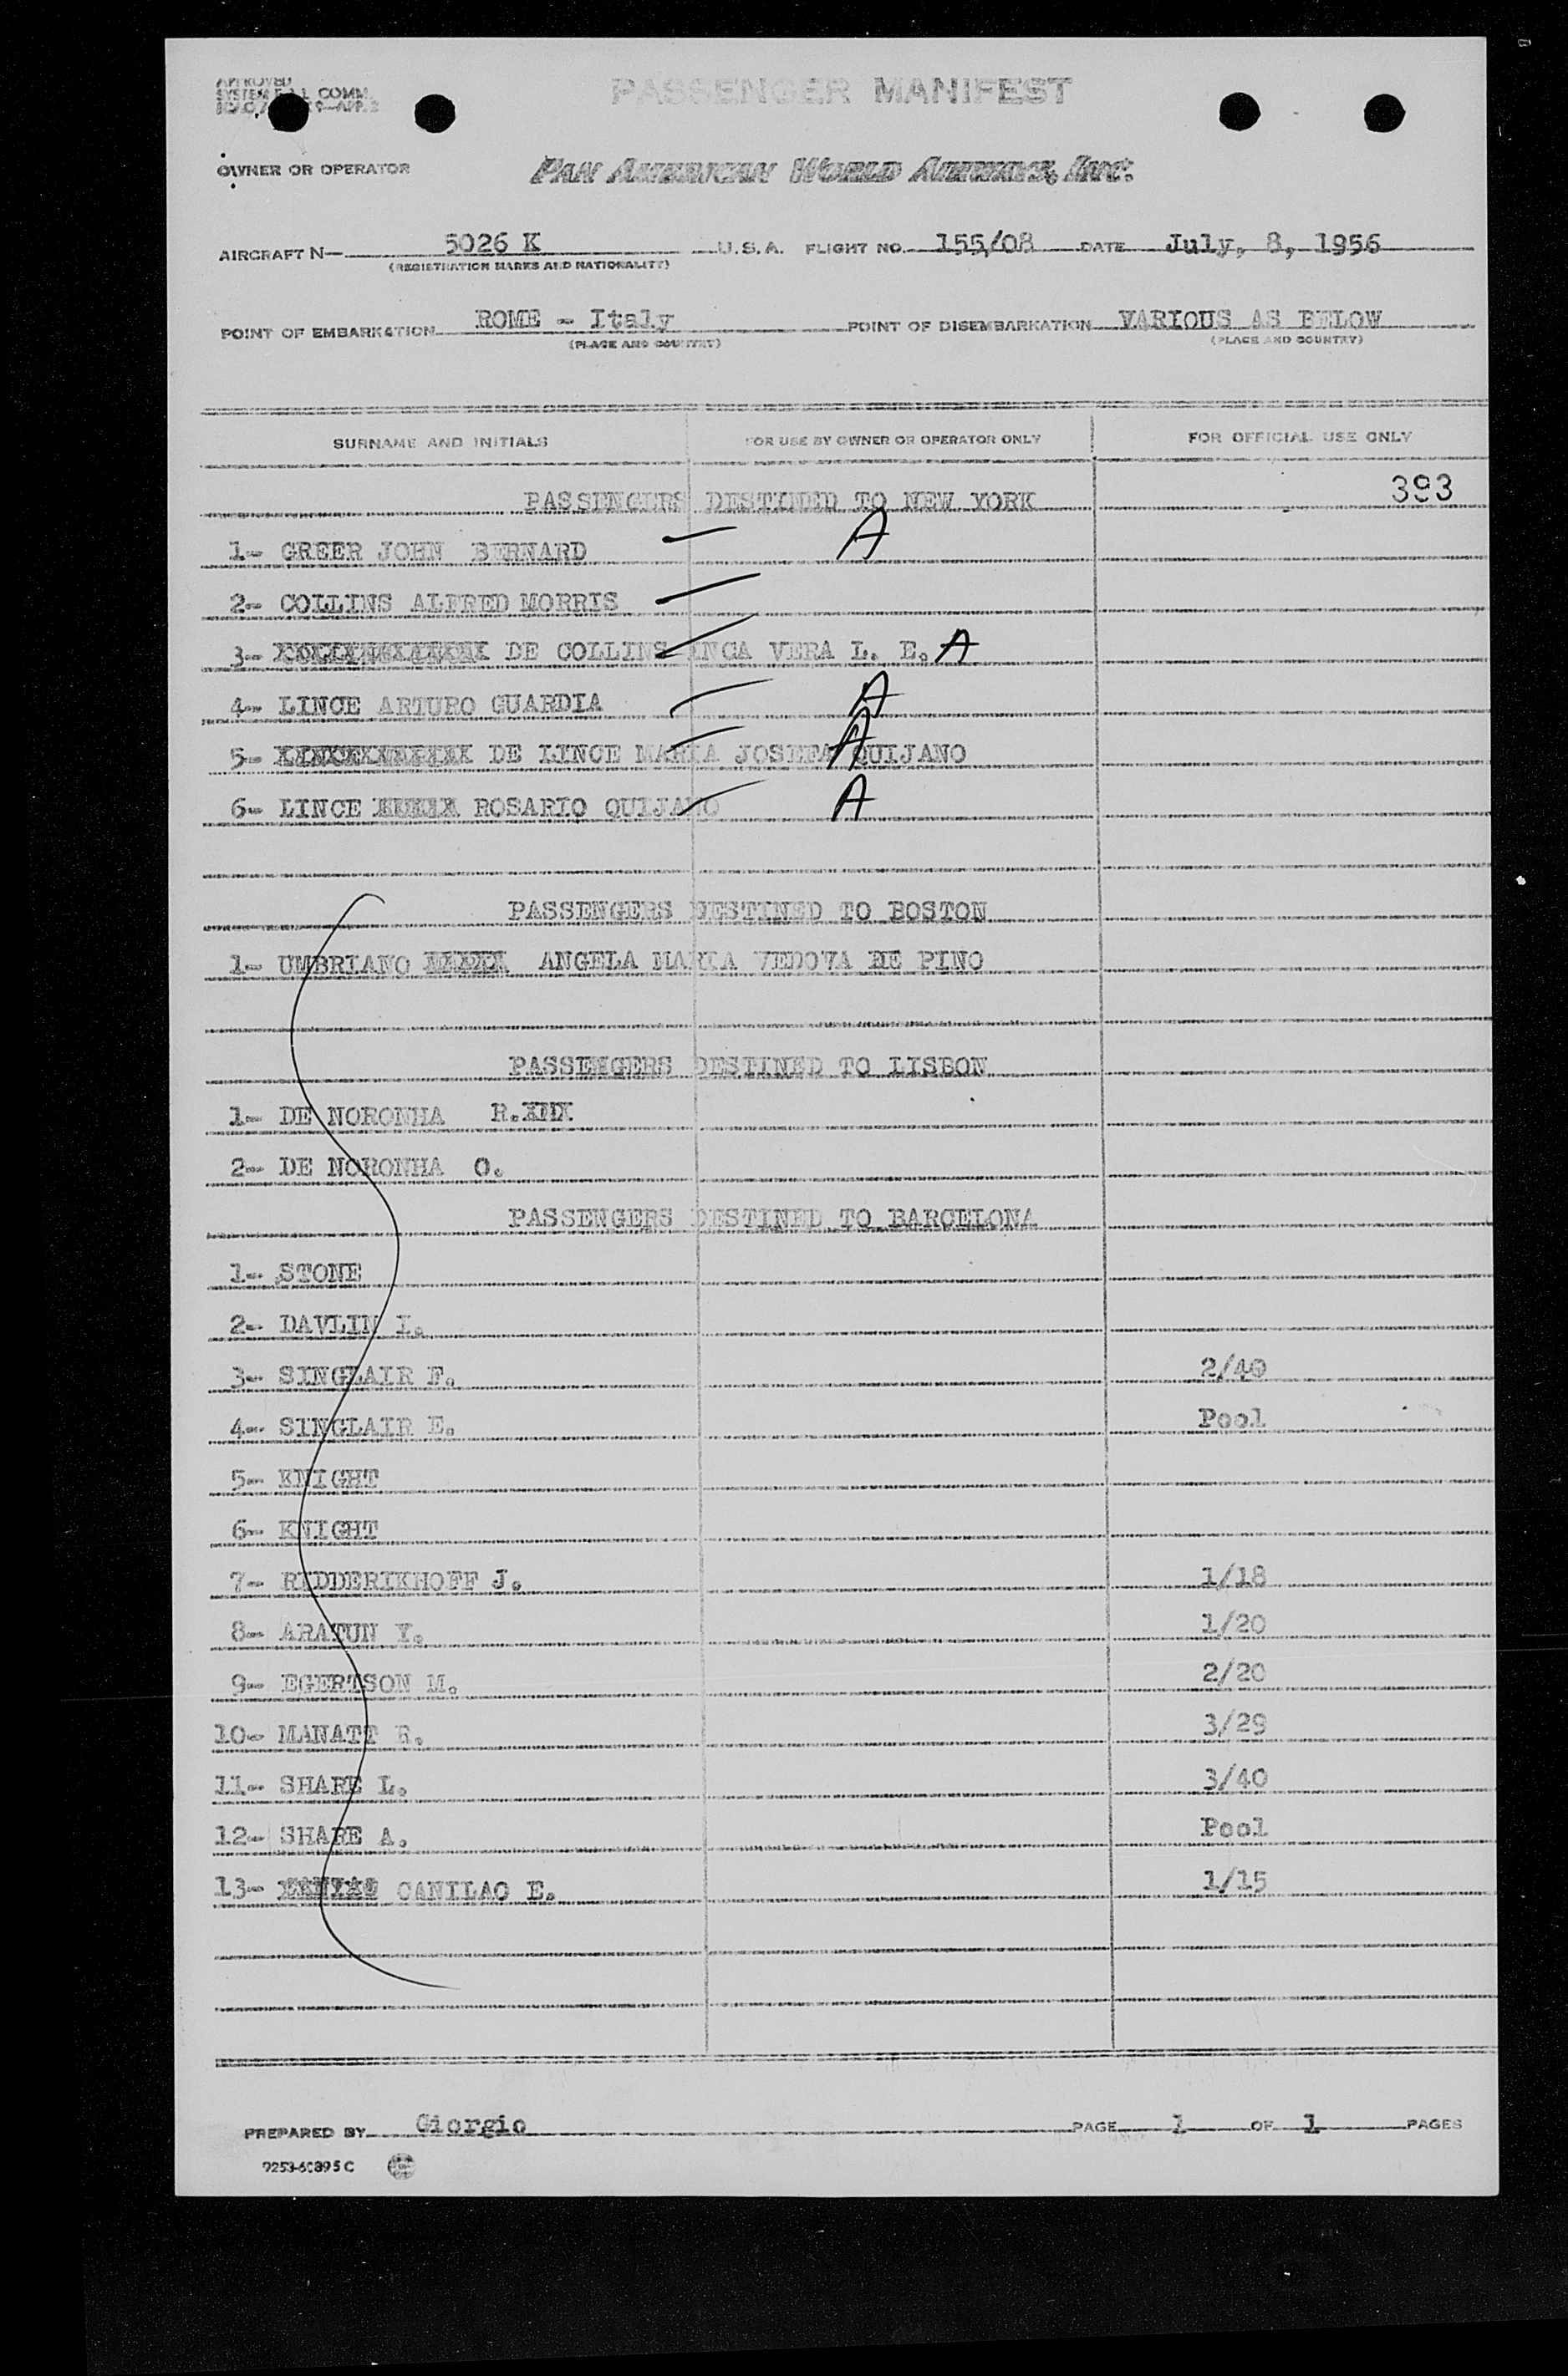 APPROVED
SYSTEM F.A.L. COMM.
PASSENGER MANIFEST
OWNER OR OPERATOR PAN AMERICAN WORLD AIRWAYS, INC.
AIRCRAFT N— 5026 K U.S.A. FLIGHT NO. 155/08 DATE July, 8, 1956
(REGISTRATION MARKS AND NATIONALITY)
POINT OF EMBARKATION ROME - Italy POINT OF DISEMBARKATION VARIOUS AS BELOW
(PLACE AND COUNTRY) (PLACE AND COUNTRY)
SURNAME AND INITIALS FOR USE BY OWNER OR OPERATOR ONLY FOR OFFICIAL USE ONLY
PASSENGERS DESTINED TO NEW YORK 393
1- GREER JOHN BERNARD A
2- COLLINS ALFRED MORRIS
3- DE COLLINS INCA VERA L. E. A
4- LINCE ARTURO GUARDIA A
5- DE LINCE MARIA JOSEFA QUIJANO A
6- LINCE ROSARIO QUIJANO A
PASSENGERS DESTINED TO BOSTON
1- UMBRIANO ANGELA MARIA VEDOVA DE PINO
PASSENGERS DESTINED TO LISBON
1- DE NORONHA R.
2- DE NORONHA O.
PASSENGERS DESTINED TO BARCELONA
1- STONE
2- DAVLIN I.
3- SINGLAIR F. 2/40
4- SINGLAIR E. Pool
5- KNIGHT
6- KNIGHT
7- RIDDERIKHOFF J. 1/18
8- ARATUN Y. 1/20
9- EGERTSON M. 2/20
10- MANATT R. 3/29
11- SHARE L. 3/40
12- SHARE A. Pool
13- CANILAO E. 1/15
PREPARED BY Giorgio PAGE 1 OF 1 PAGES